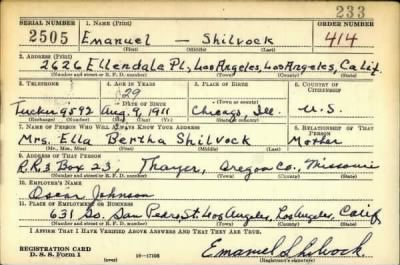 233
SERIAL NUMBER 1. NAME (Print) ORDER NUMBER
2505 Emanuel — Shilvock 414
(First) (Middle) (Last)
2. ADDRESS (Print)
2626 Ellendale Pl, Los Angeles, Los Angeles, Calif.
(Number and street or R. F. D. number) (Town) (County) (State)
3. TELEPHONE 4. AGE IN YEARS 5. PLACE OF BIRTH 6. COUNTRY OF CITIZENSHIP
29
DATE OF BIRTH (Town or county)
Tucker 9592 Aug. 9, 1911 Chicago Ill. U.S.
(Exchange) (Number) (Mo.) (Day) (Yr.) (State or country)
7. NAME OF PERSON WHO WILL ALWAYS KNOW YOUR ADDRESS 8. RELATIONSHIP OF THAT PERSON
Mrs. Ella Bertha Shilvock Mother
(Mr., Mrs., Miss) (First) (Middle) (Last)
9. ADDRESS OF THAT PERSON
R.R.3 Box 23 Thayer, Oregon Co., Missouri
(Number and street or R. F. D. number) (Town) (County) (State)
10. EMPLOYER'S NAME
Oscar Johnson
11. PLACE OF EMPLOYMENT OR BUSINESS
631 So. San Pedro, St. Los Angeles, Los Angeles, Calif
(Number and street or R. F. D. number) (Town) (County) (State)
I AFFIRM THAT I HAVE VERIFIED ABOVE ANSWERS AND THAT THEY ARE TRUE.
REGISTRATION CARD
D. S. S. Form 1 16—17105 Emanuel Shilvock
(Registrant's signature)